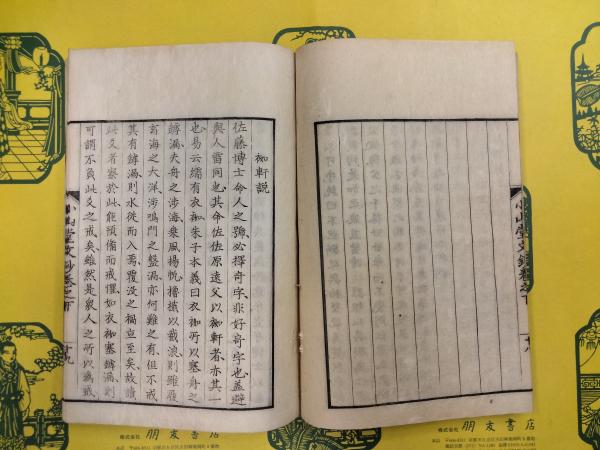 袽軒説
佐藤博士命人之號必擇奇字非好奇字也蓋避
與人雷同也其命佐佐原遠父以袽軒者亦其一
也易云繻有衣袽朱子本義曰衣袽所以塞舟之
罅漏夫舟之涉海乘風揚帆擼楫以截浪則雖
玄海之大洋涉鳴門之盤渦亦何難之有但不戒
其有罅漏則水從而入焉覆沒之禍立至矣故讀
此爻者察於此能預備而戒懼如衣袽塞罅漏則
可謂不負此爻之戒矣雖然是衆人之所以為戒
小山堂文鈔卷之下
十九
小山堂文鈔卷之下
十八
株式会社 朋友書店
株式会社 朋友書店